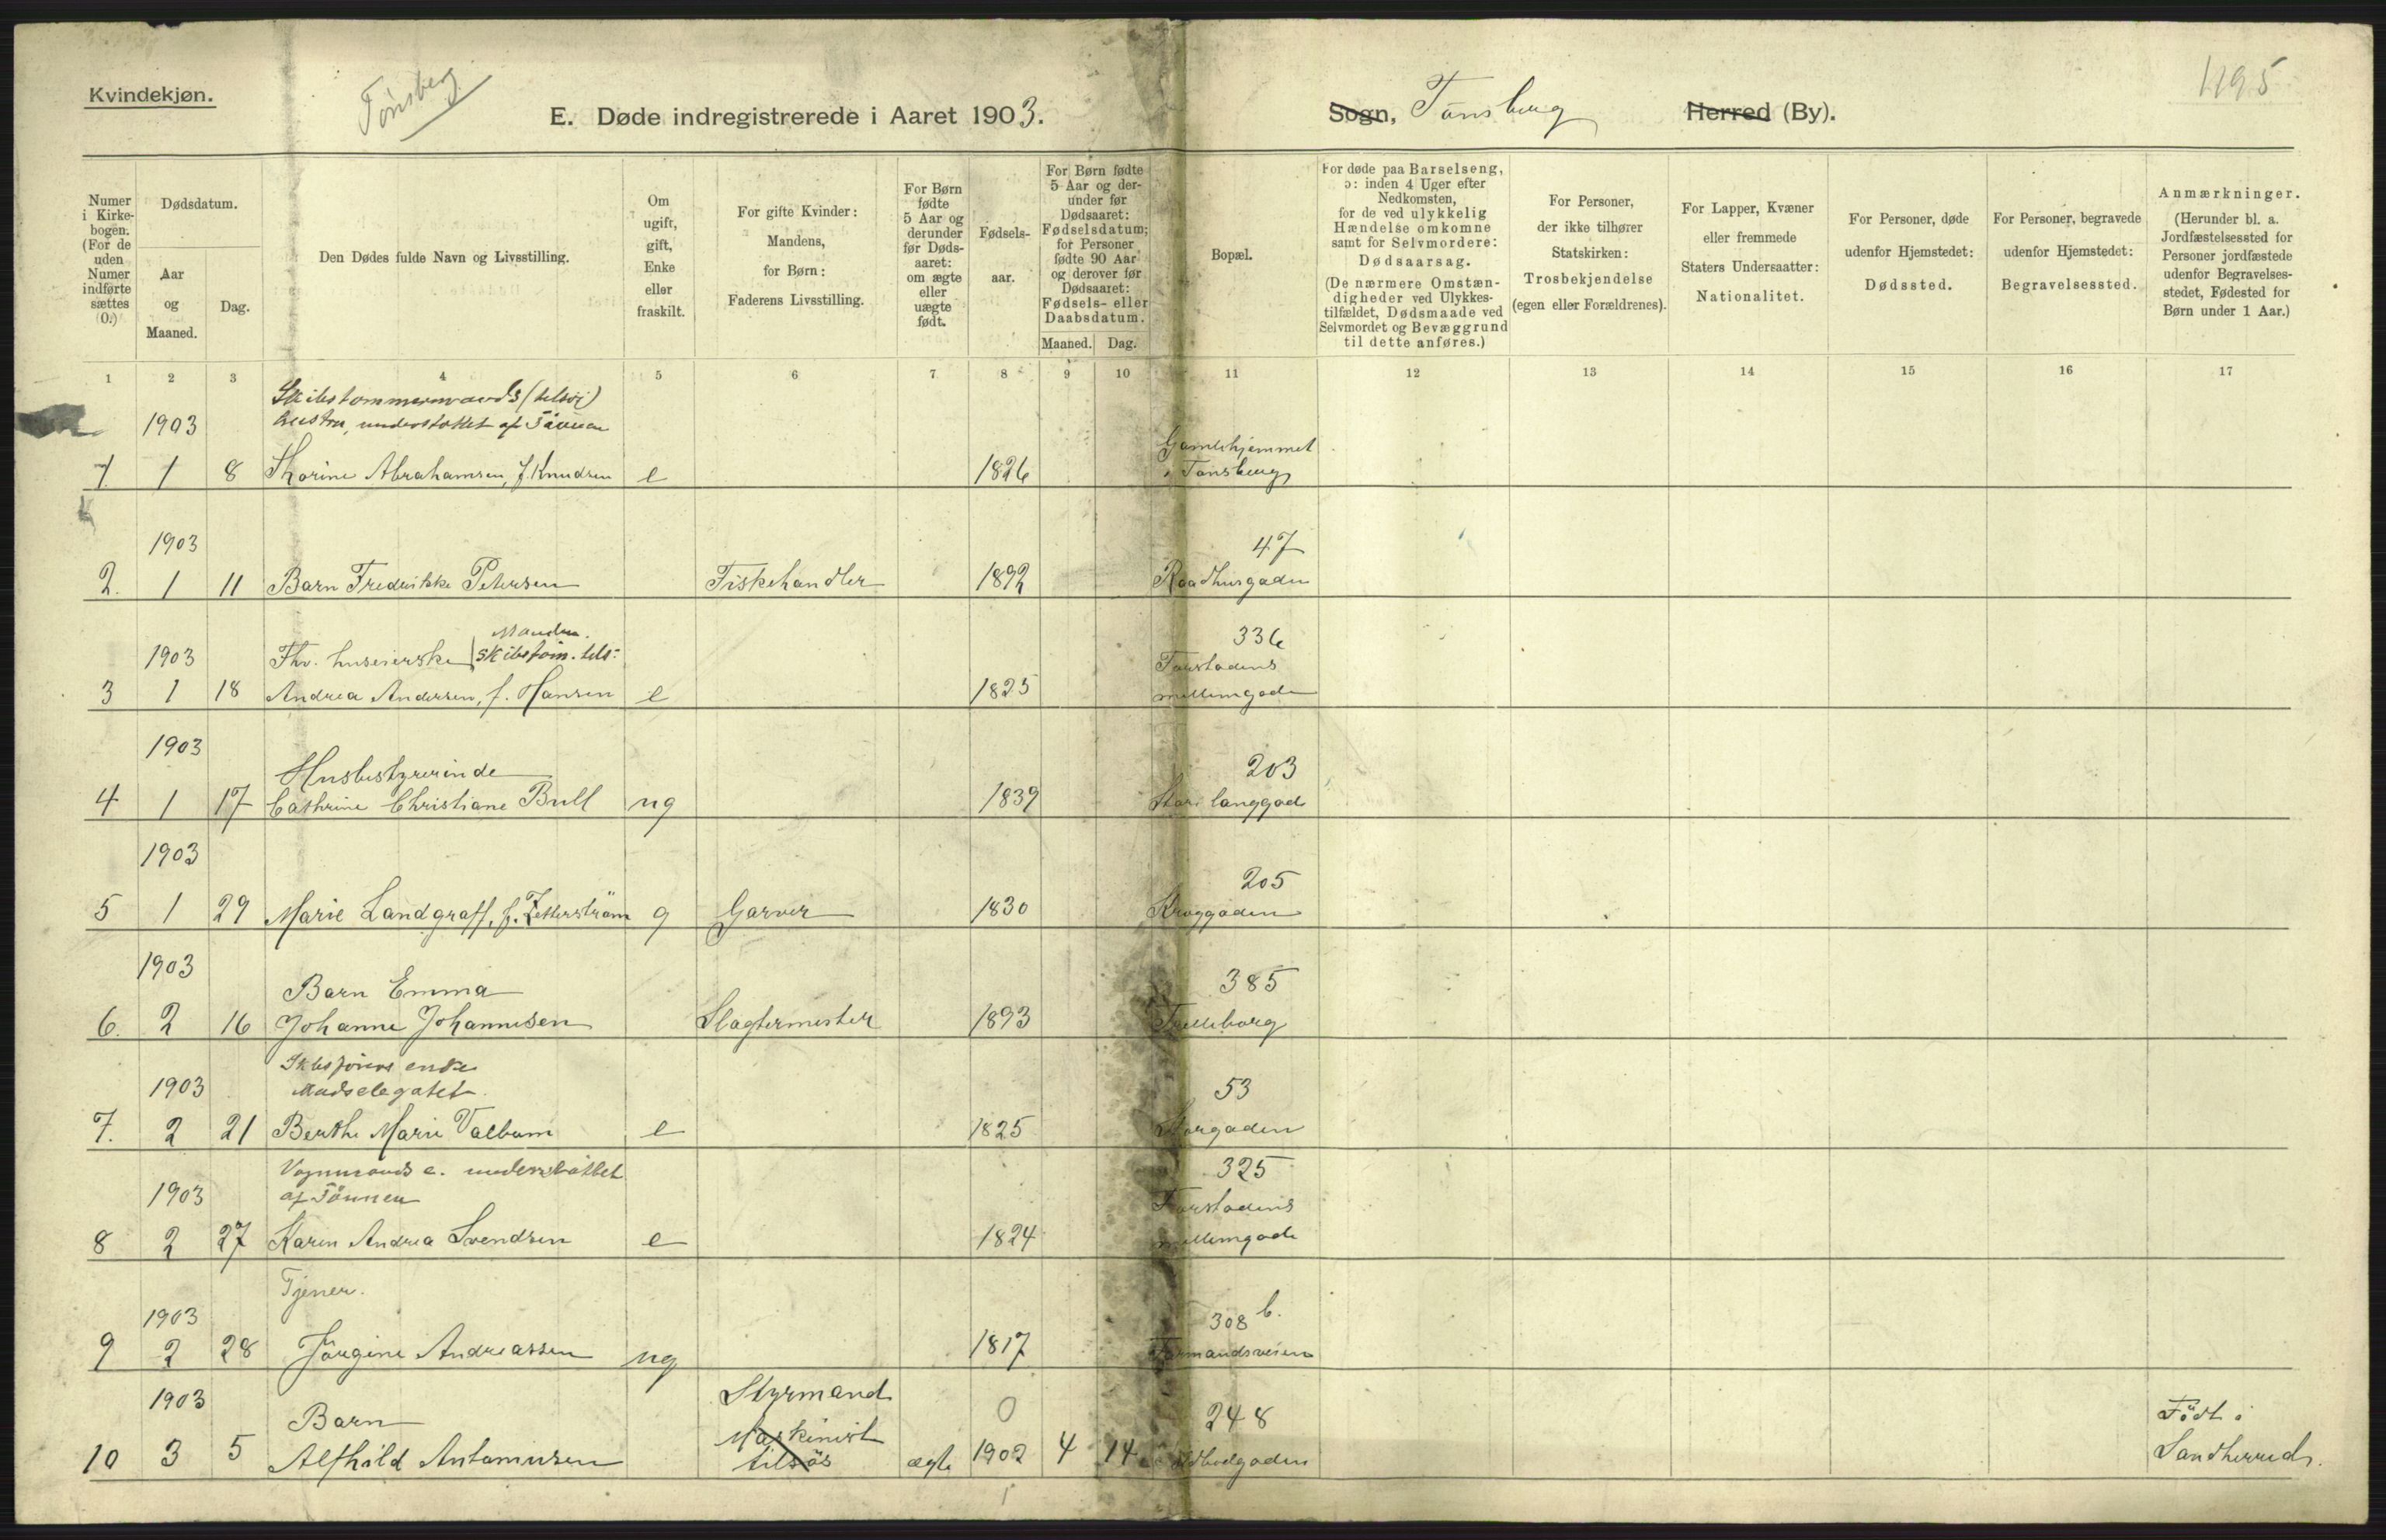 Kvindekjøn.
Tønsberg
E. Døde indregistrerede i Aaret 1903.
Sogn, Tönsberg Herred (By).
1195
Numer i Kirkebogen. (For de uden Numer indførte sættes 0.)
Dødsdatum.
Aar og Maaned.
Dag.
Den Dødes fulde Navn og Livsstilling.
Om ugift, gift, Enke eller fraskilt.
For gifte Kvinder: Mandens, for Børn: Faderens Livsstilling.
For Børn fødte 5 Aar og derunder før Dødsaaret: om ægte eller uægte født.
Fødselsaar.
For Børn fødte 5 Aar og derunder før Dødsaaret: Fødselsdatum; for Personer fødte 90 Aar og derover før Dødsaaret: Fødsels- eller Daabsdatum.
Maaned. Dag.
Bopæl.
For døde paa Barselseng, ɔ: inden 4 Uger efter Nedkomsten, for de ved ulykkelig Hændelse omkomne samt for Selvmordere: Dødsaarsag.
(De nærmere Omstændigheder ved Ulykkestilfældet, Dødsmaade ved Selvmordet og Bevæggrund til dette anføres.)
For Personer, der ikke tilhører Statskirken: Trosbekjendelse (egen eller Forældrenes).
For Lapper, Kvæner eller fremmede Staters Undersaatter: Nationalitet.
For Personer, døde udenfor Hjemstedet: Dødssted.
For Personer, begravede udenfor Hjemstedet: Begravelsessted.
Anmærkninger.
(Herunder bl. a. Jordfæstelsessted for Personer jordfæstede udenfor Begravelsesstedet, Fødested for Børn under 1 Aar.)
1 2 3 4 5 6 7 8 9 10 11 12 13 14 15 16 17
Skibstømmermands (tilsøs)
1903 hustru, understøttet af
Gamlehjemmet
1 1 8 Thorine Abrahamsen, f. Knudsen e 1826 i Tönsberg
1903 47
2. 1 11 Barn Fredrikke Petersen Fiskehandler 1892 Raadhusgaden
Manden 336
1903 Fhv. huseierske skibstøm. tils: Forstadens
3 1 18 Andrea Andersen, f. Hansen e 1825 mellemgade
1903
Husbestyrerinde 203
4 1 17 Cathrine Christiane Bull ug 1839 Store langgade
1903
205
5 1 29 Marie Landgraff, f. Zetterström g Garver 1830 Kroggaden
1903
Barn Emma 385
6. 2 16 Johanne Johannesen Slagtermester 1893 Trælleborg
enke
1903 53
7. 2 21 Berthe Marie Valbum e 1825 Storgaden
Vognmands e. understøttet 325
1903 af Forstadens
8 2 27 Karen Andrea Svendsen e 1824 mellemgade
Tjener.
1903 308 b.
9 2 28 Jörgine Andreassen ug 1817 Farmandsveien
1903 Barn Styrmand 0 248 Född i
Maskinist
10 3 5 Alfhild Antonisen tilsös ægte 1902 4 14 Toldbodgaden Sandherred.